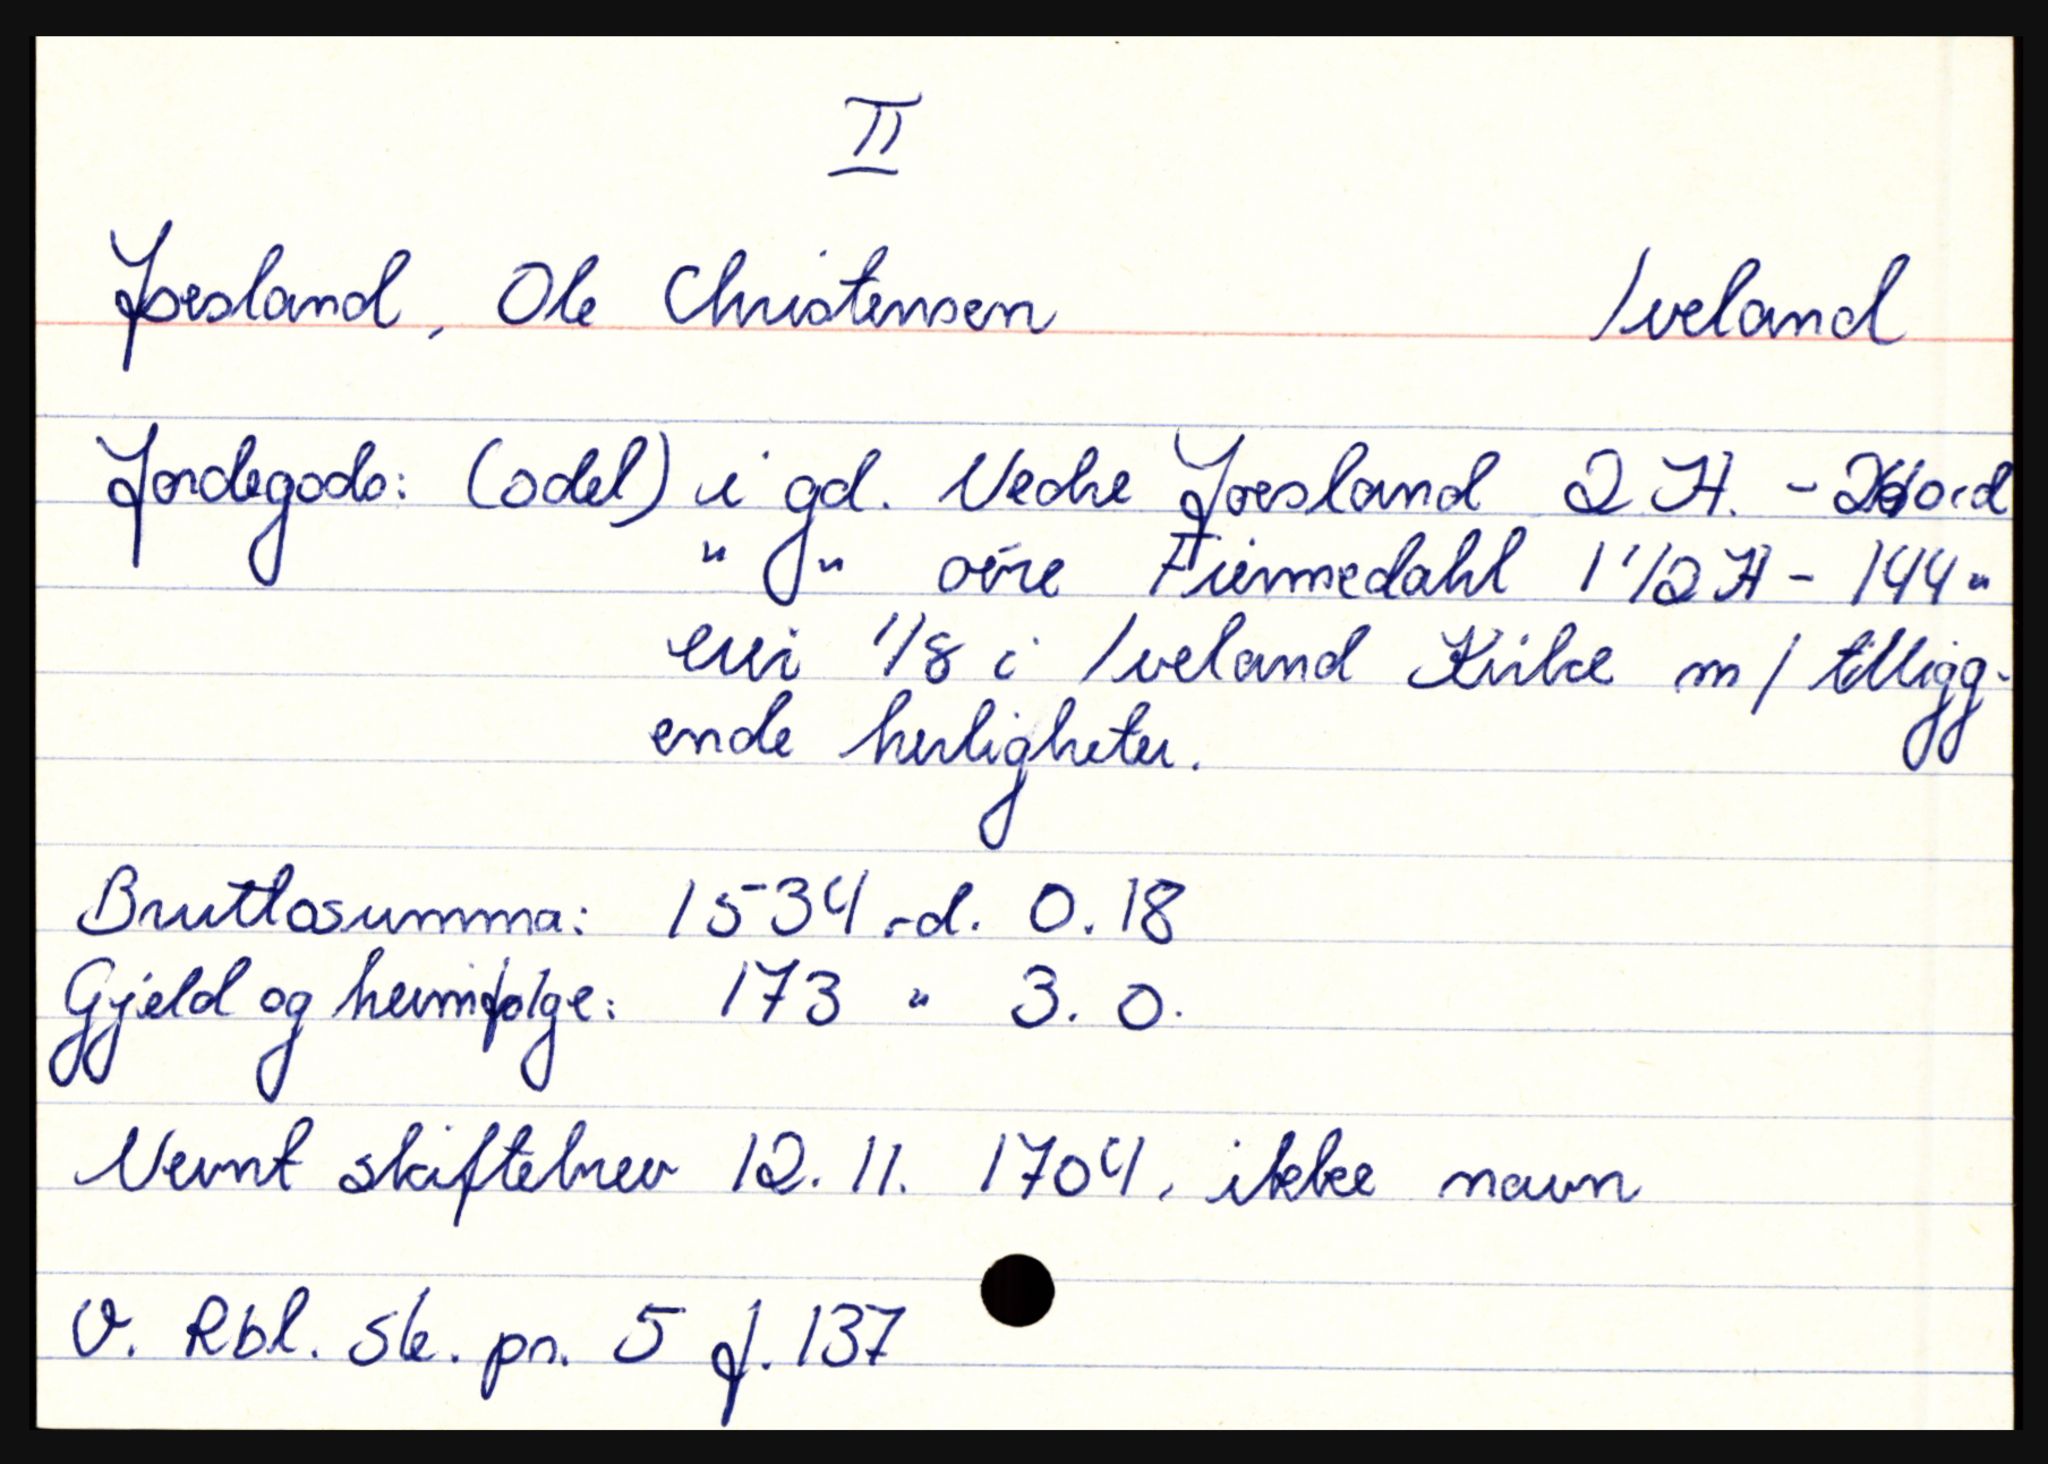 II
Joesland, Ole Christensen Iveland
Jordegods: (odel) i gd. Nedre Joesland 2 H. - rd
" g " øvre Fiermedahl 1 1/2 H - 144 "
eier 1/8 i Iveland Kirke m/ tilligg-
ende herligheter.
Bruttosumma: 1534 rd. 0. 18
Gjeld og heimfølge: 173 " 3. 0.
Nevnt skiftebrev 12. 11. 1704, ikke navn
V. Rbl. Sk. pr. 5 f. 137